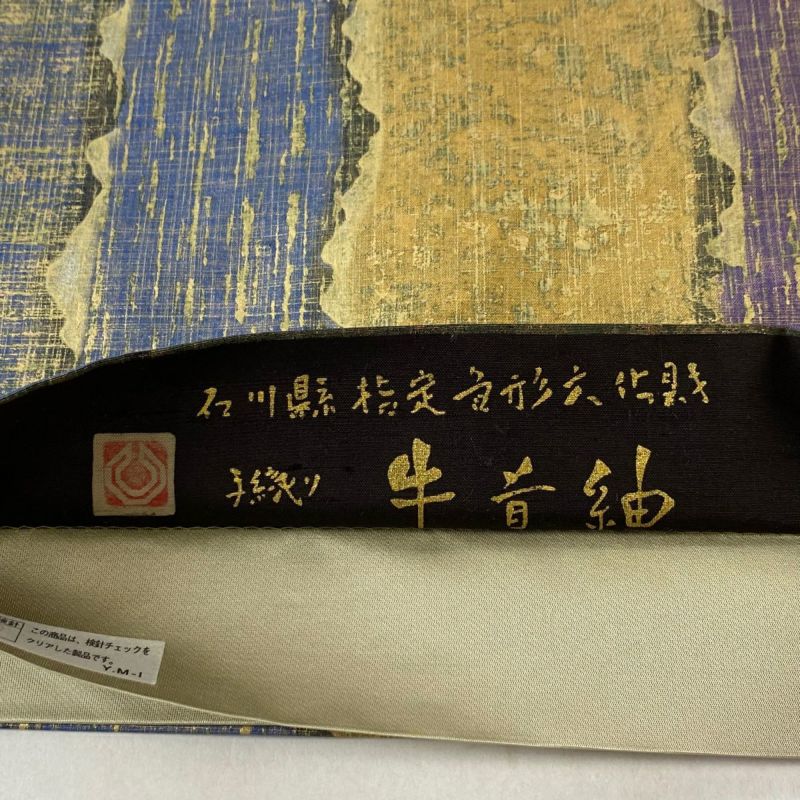 石川縣指定無形文化財
手織り 牛首紬
検針
この商品は、検針チェックを
クリアした製品です。
Y.M-1